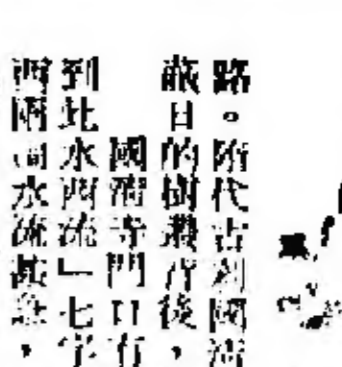 路。隋代古刹國清
蔽日的樹叢背後，
國清寺門口有
到此水西流」七字
水流甚急，